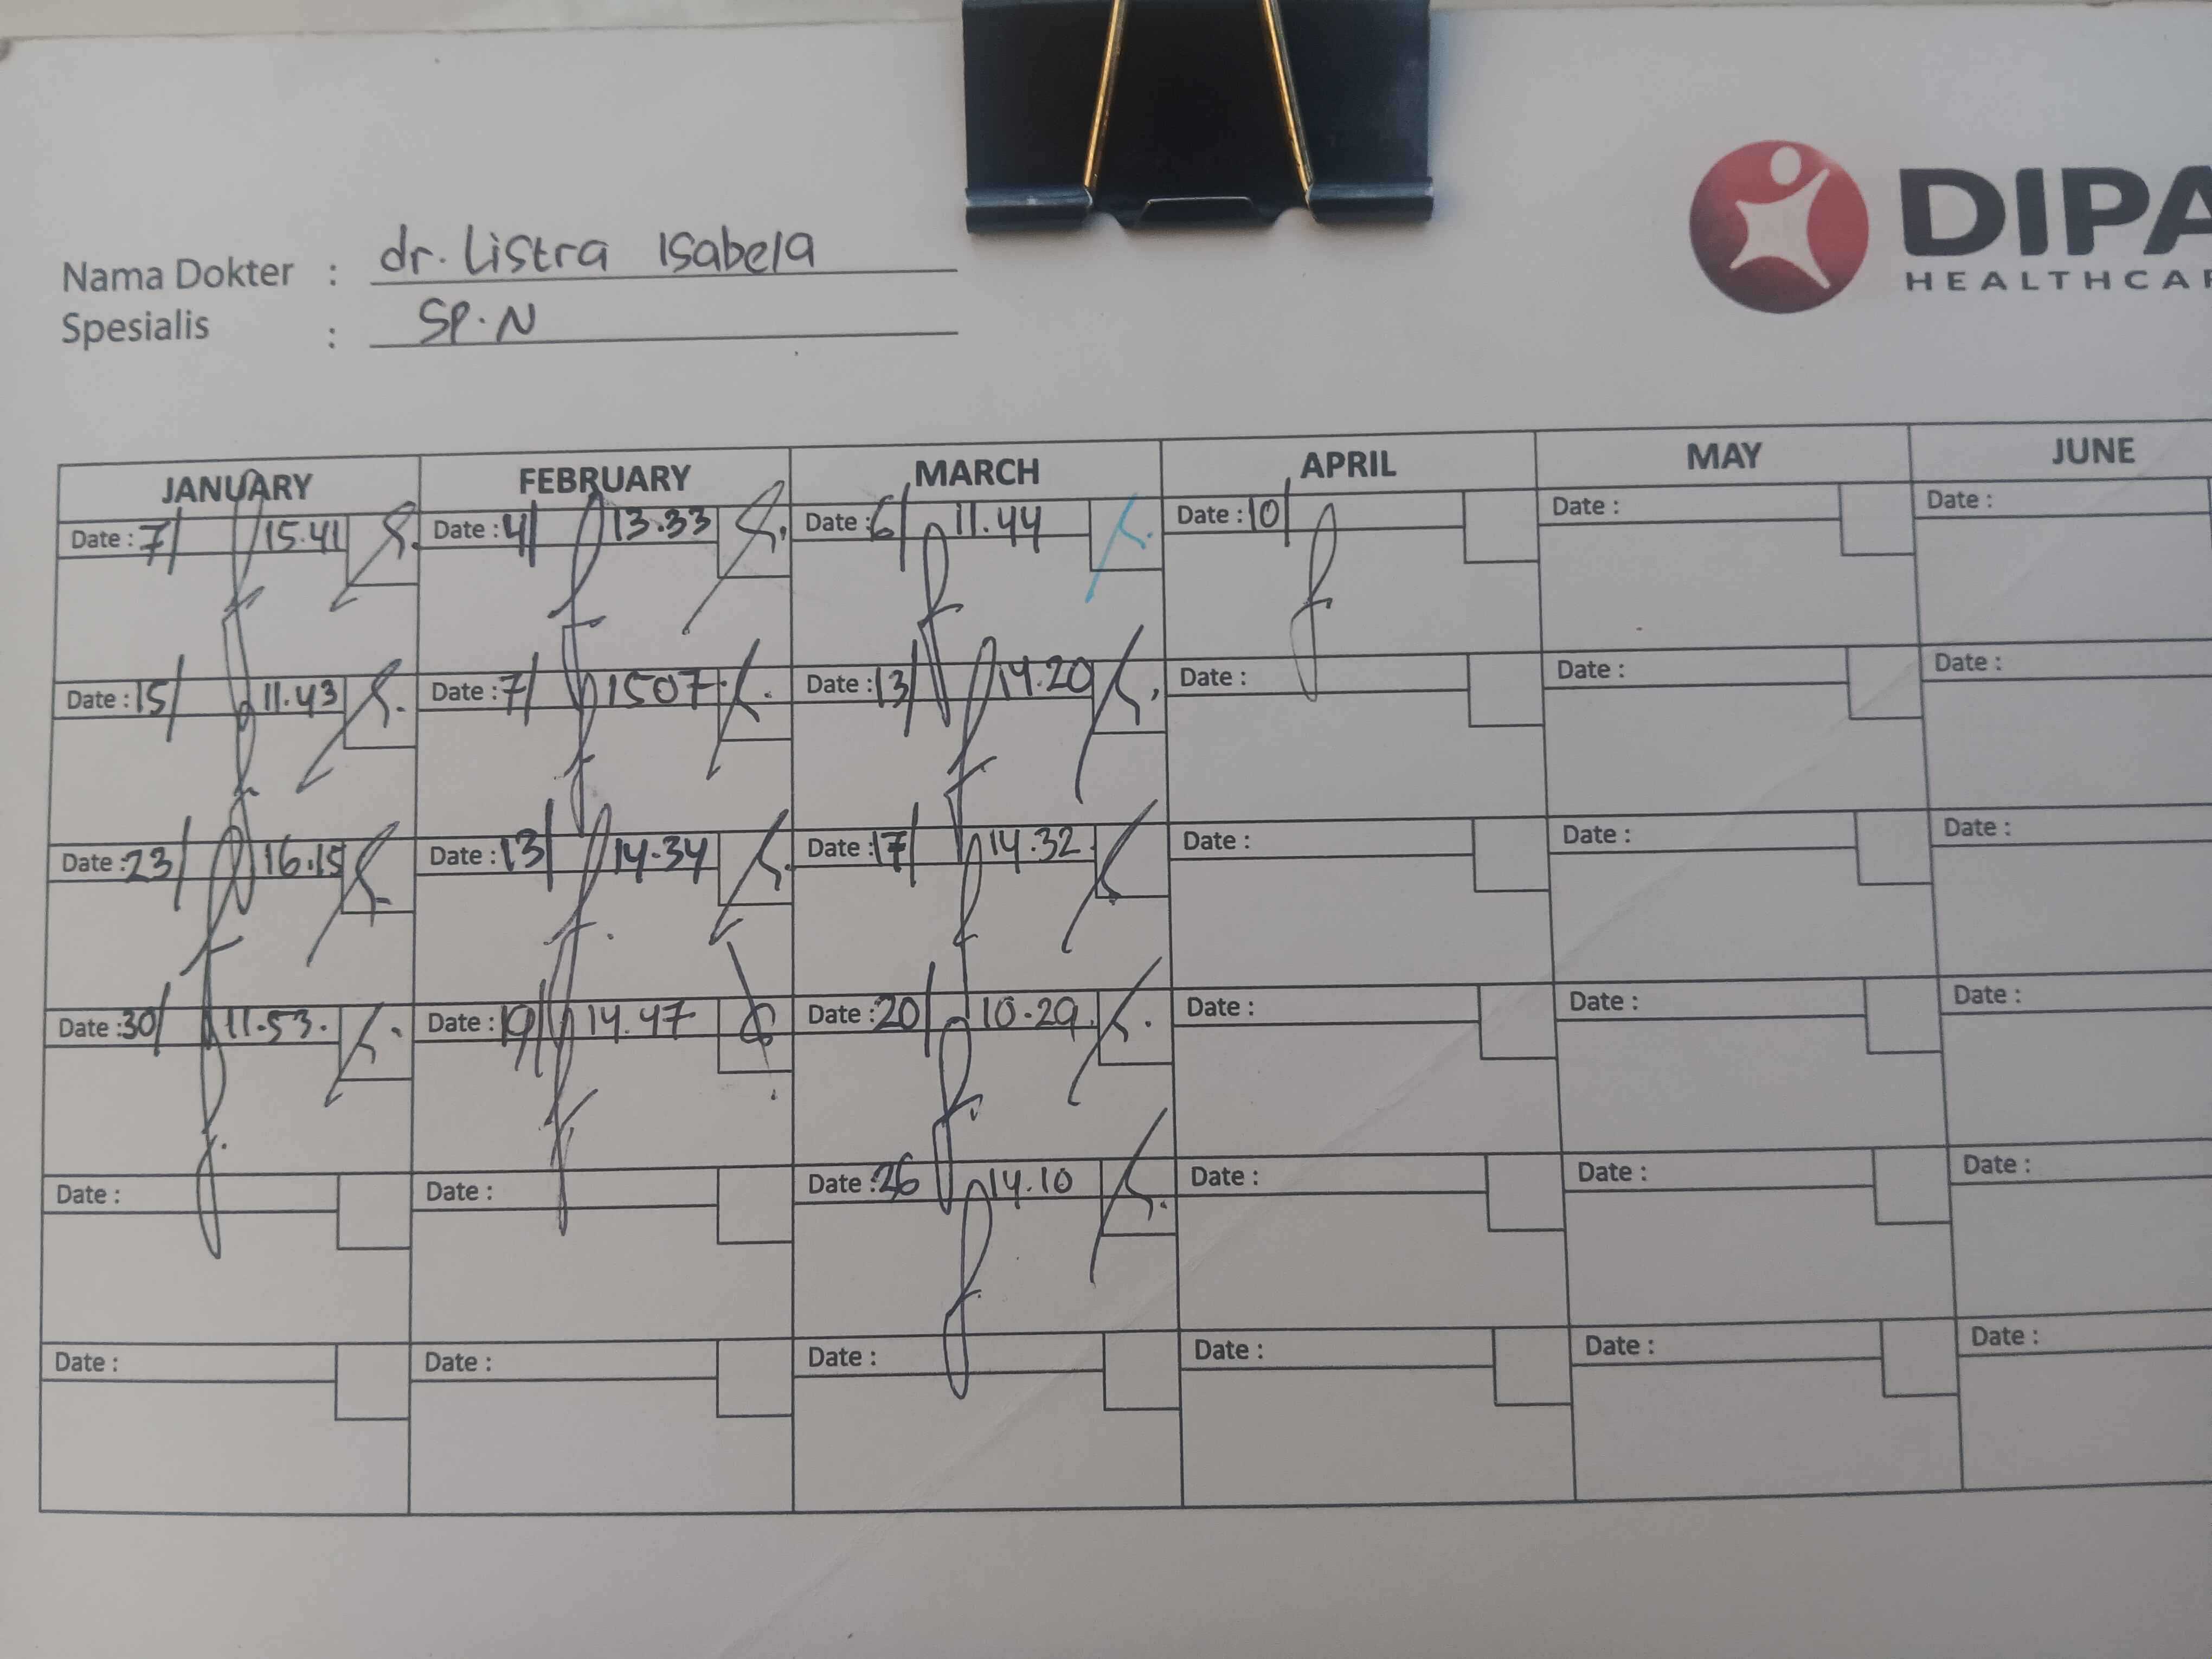 Nama Dokter : dr. Listra Isabela
Spesialis : SP.N
DIPA
HEALTHCAR
JANUARY FEBRUARY MARCH APRIL MAY JUNE
Date : 7/ 15.41 Date : 4/ 13.33 Date : 6/ 11.44 Date : 10/ Date : Date :
Date : 15/ 11.43 Date : 7/ 1507 Date : 13/ 14.20 Date : Date : Date :
Date : 23/ 16.15 Date : 13/ 14.34 Date : 17/ 14.32 Date : Date : Date :
Date : 30/ 11.53. Date : 19/ 14.47 Date : 20/ 10.29 Date : Date : Date :
Date : Date : Date : 26 14.10 Date : Date : Date :
Date : Date : Date : Date : Date : Date :